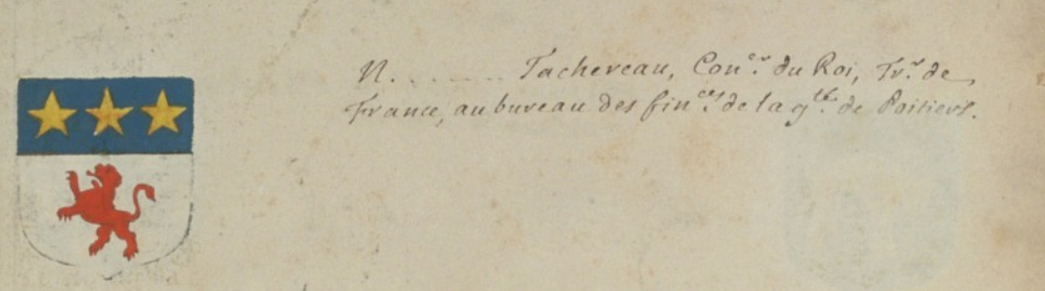 N. ....... Tachereau, Con.er du Roi, Tr.r de
France, au bureau des fin.ces de la g.té de Poitiers.